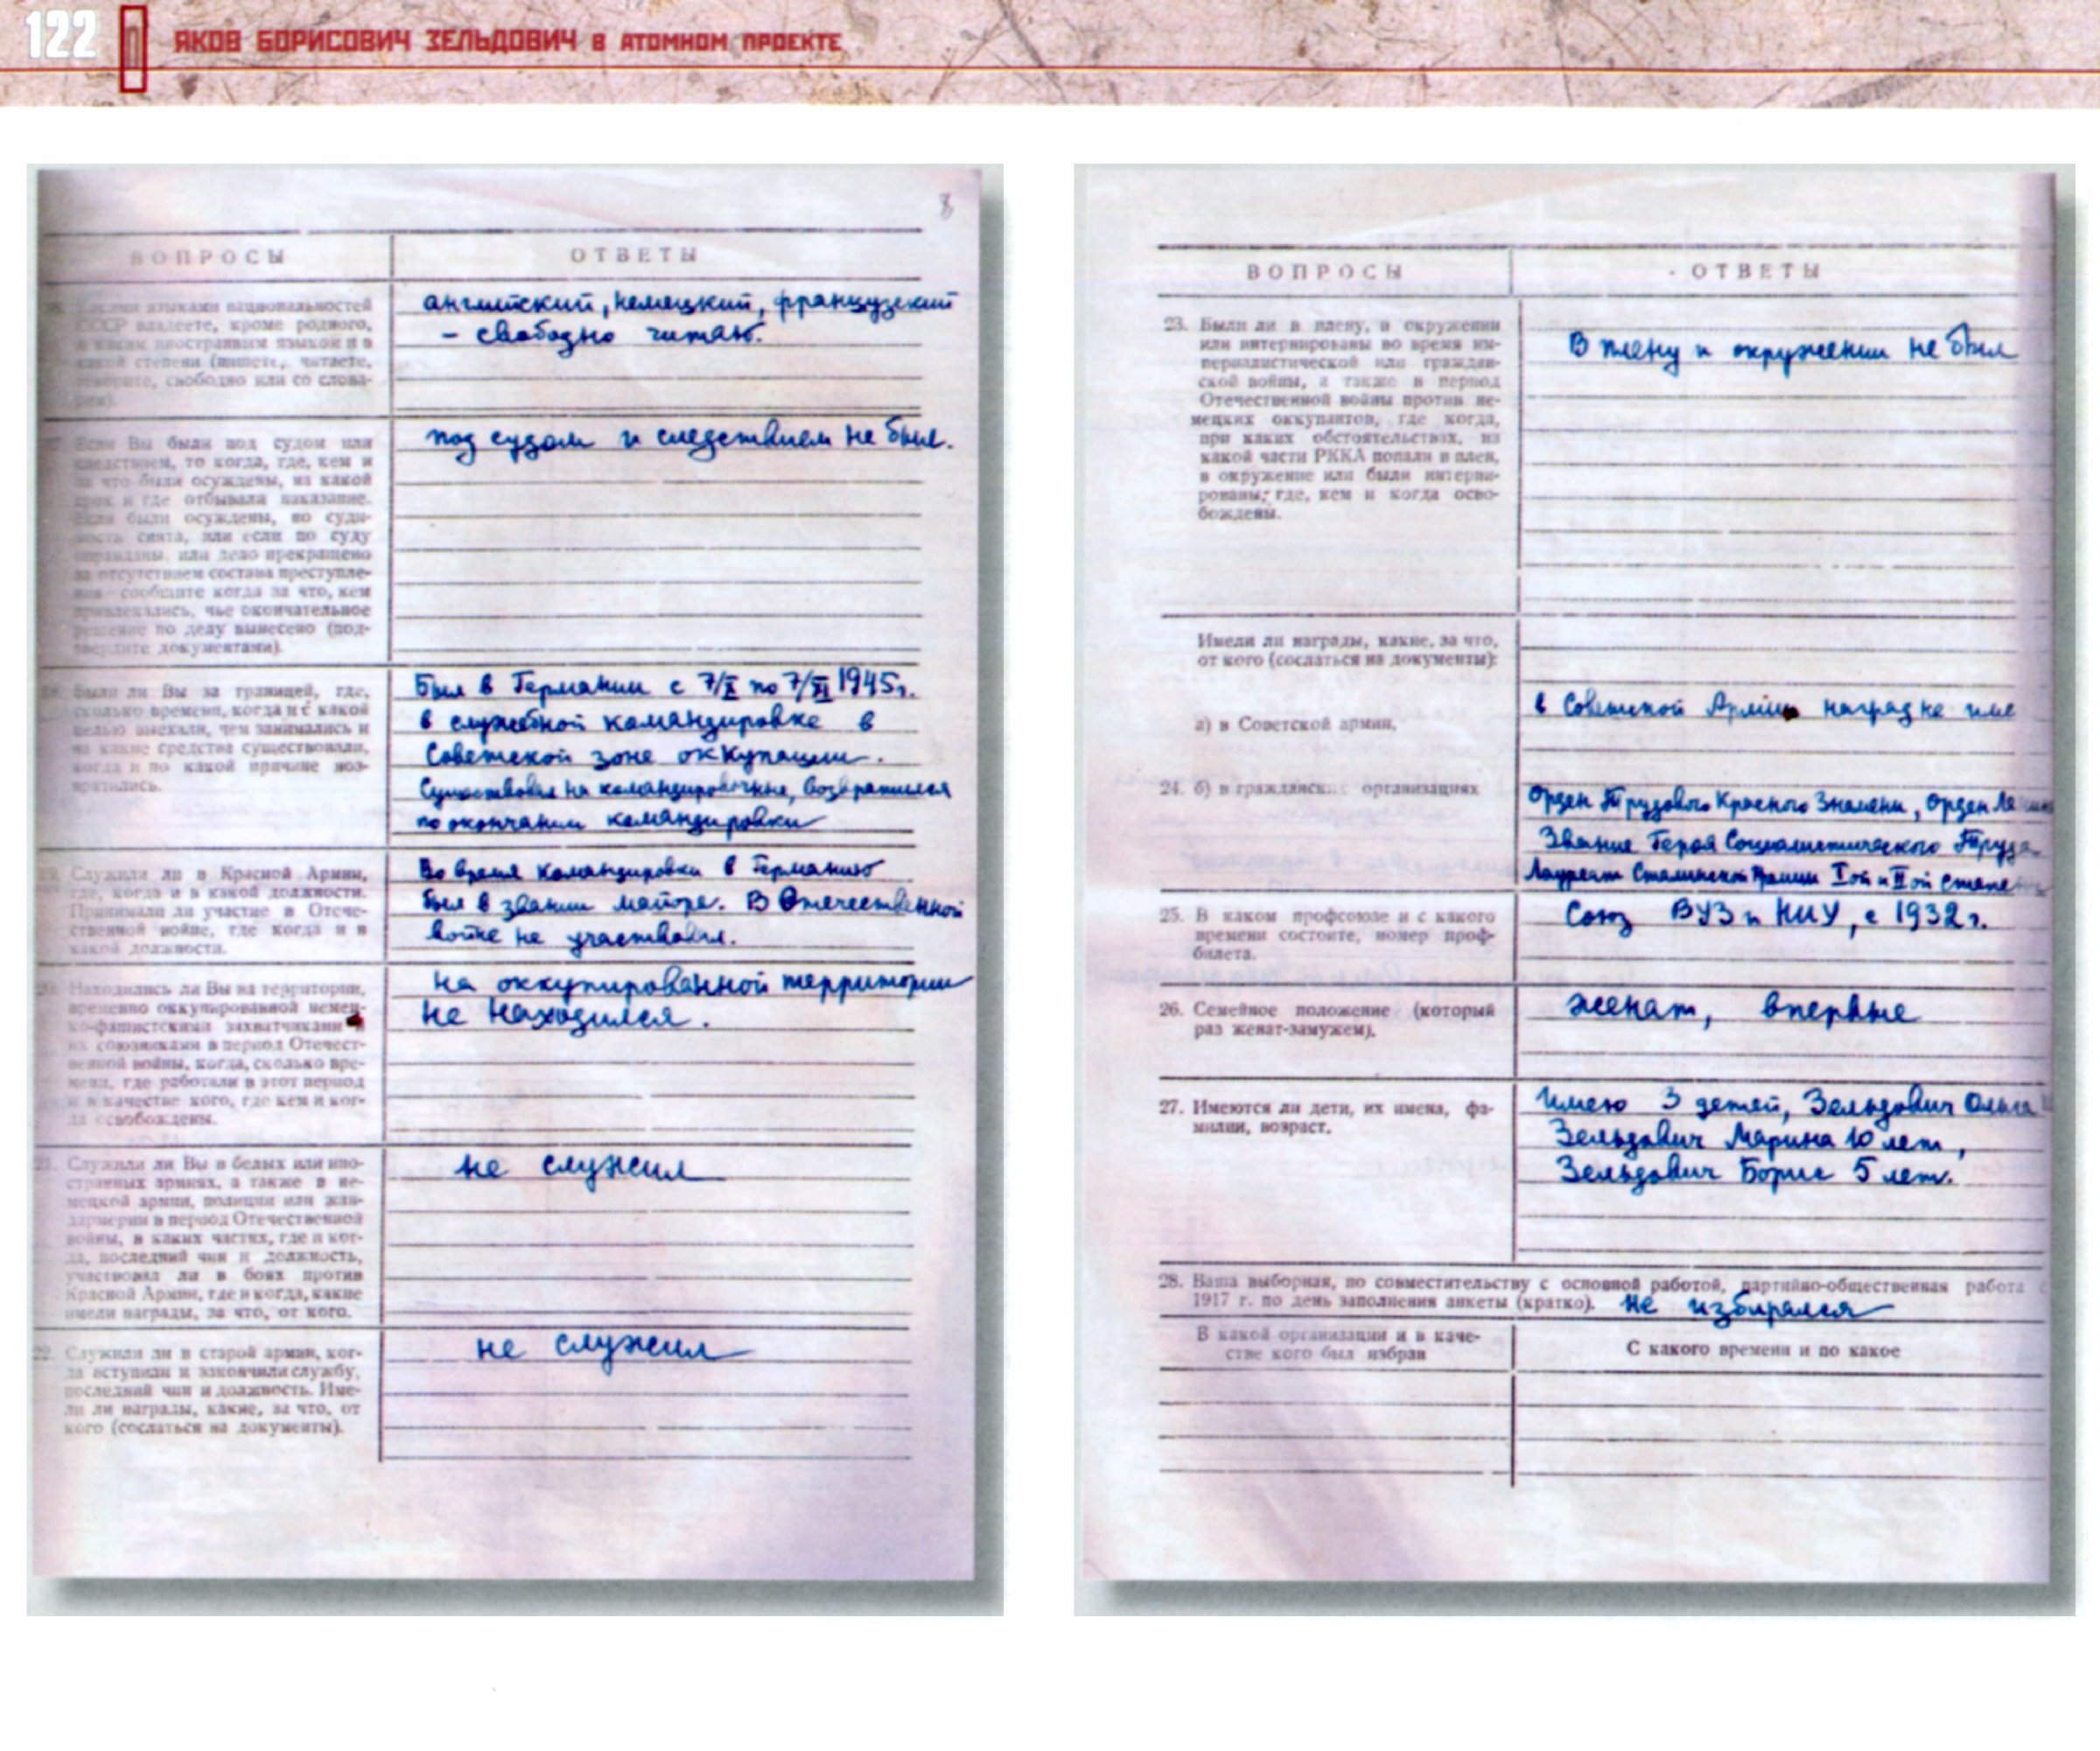 122
ЯКОВ БОРИСОВИЧ ЗЕЛЬДОВИЧ В АТОМНОМ ПРОЕКТЕ
8
ВОПРОСЫ
ОТВЕТЫ
языками национальностей
СССР владеете, кроме родного,
и каким иностранным языком и в
какой степени (пишете, читаете,
говорите, свободно или со слова-
рем).
английский, немецкий, французский
– свободно читаю.
Если Вы были под судом или
следствием, то когда, где, кем и
за что были осуждены, на какой
срок и где отбывали наказание.
Если были осуждены, но суди-
мость снята, или если по суду
оправданы или дело прекращено
за отсутствием состава преступле-
ния – сообщите когда за что, кем
привлекались, чье окончательное
решение по делу вынесено (под-
твердите документами).
под судом и следствием не был.
Были ли Вы за границей, где,
сколько времени, когда и с какой
целью выехали, чем занимались и
на какие средства существовали,
когда и по какой причине воз-
вратились.
Был в Германии с 7/X по 7/XI 1945г.
в служебной командировке в
Советской зоне оккупации.
Существовал на командировочные, возвратился
по окончании командировки
Служили ли в Красной Армии,
где, когда и в какой должности.
Принимали ли участие в Отече-
ственной войне, где когда и в
какой должности.
Во время командировки в Германию
был в звании майора. В Отечественной
войне не участвовал.
Находились ли Вы на территории,
временно оккупированной немец-
ко-фашистскими захватчиками и
их союзниками в период Отечест-
венной войны, когда, сколько вре-
мени, где работали в этот период
и в качестве кого, где кем и ког-
да освобождены.
на оккупированной территории
не находился.
21. Служили ли Вы в белых или ино-
странных армиях, а также в не-
мецкой армии, полиции или жан-
дармерии в период Отечественной
войны, в каких частях, где и ког-
да, последний чин и должность,
участвовал ли в боях против
Красной Армии, где и когда, какие
имели награды, за что, от кого.
не служил
22. Служили ли в старой армии, ког-
да вступили и закончили службу,
последний чин и должность. Име-
ли ли награды, какие, за что, от
кого (сослаться на документы).
не служил
ВОПРОСЫ
ОТВЕТЫ
23. Были ли в плену, в окружении
или интернированы во время им-
периалистической или граждан-
ской войны, а также в период
Отечественной войны против не-
мецких оккупантов, где когда,
при каких обстоятельствах, из
какой части РККА попали в плен,
в окружение или были интерни-
рованы; где, кем и когда осво-
бождены.
В плену и окружении не был
Имели ли награды, какие, за что,
от кого (сослаться на документы):
а) в Советской армии,
в Советской Армии наград не име
24. б) в гражданских организациях
Орден Трудового Красного Знамени, Орден Ленина
Звание Героя Социалистического Труда
Лауреат Сталинской Премии I ой и II ой степе
25. В каком профсоюзе и с какого
времени состоите, номер проф-
билета.
Союз ВУЗ и НИУ, с 1932 г.
26. Семейное положение (который
раз женат-замужем).
женат, впервые
27. Имеются ли дети, их имена, фа-
милии, возраст.
Имею 3 детей, Зельдович Ольга
Зельдович Марина 10 лет,
Зельдович Борис 5 лет.
28. Ваша выборная, по совместительству с основной работой, партийно-общественная работа с
1917 г. по день заполнения анкеты (кратко). не избирался
В какой организации и в каче-
стве кого был избран
С какого времени и по какое